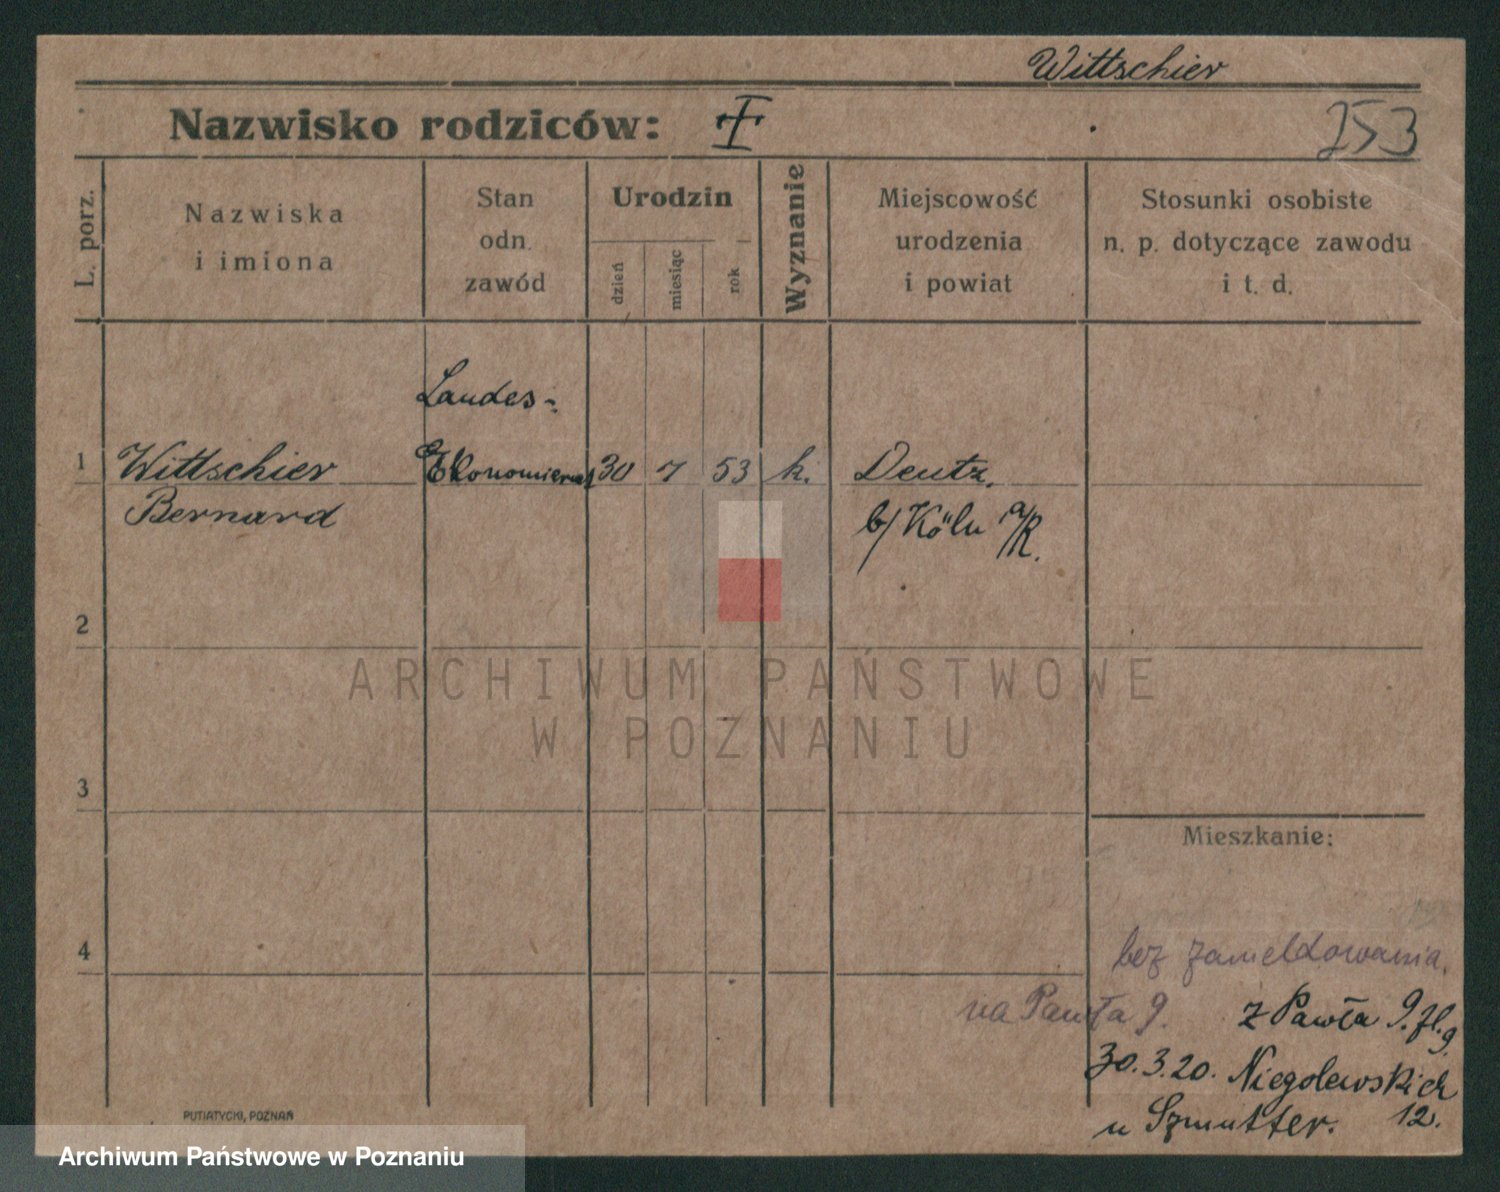 Wittschier
Nazwisko rodziców:
253
L. porz.
Nazwiska
i imiona
Stan
odn.
zawód
Urodzin
dzień
miesiąc
rok
Wyznanie
Miejscowość
urodzenia
i powiat
Stosunki osobiste
n. p. dotyczące zawodu
i t. d.
Landes-
1 Wittschier Ekonomierat 30 7 53 k. Deutz.
Bernard b/ Köln a/R.
2
ARCHIWUM PAŃSTWOWE
W POZNANIU
3
Mieszkanie:
4
bez zameldowania.
na Pawła 9. z Pawła 9.
30.3.20. Niegolewskich
u Szmutter. 12.
PUTIATYCKI, POZNAŃ
Archiwum Państwowe w Poznaniu